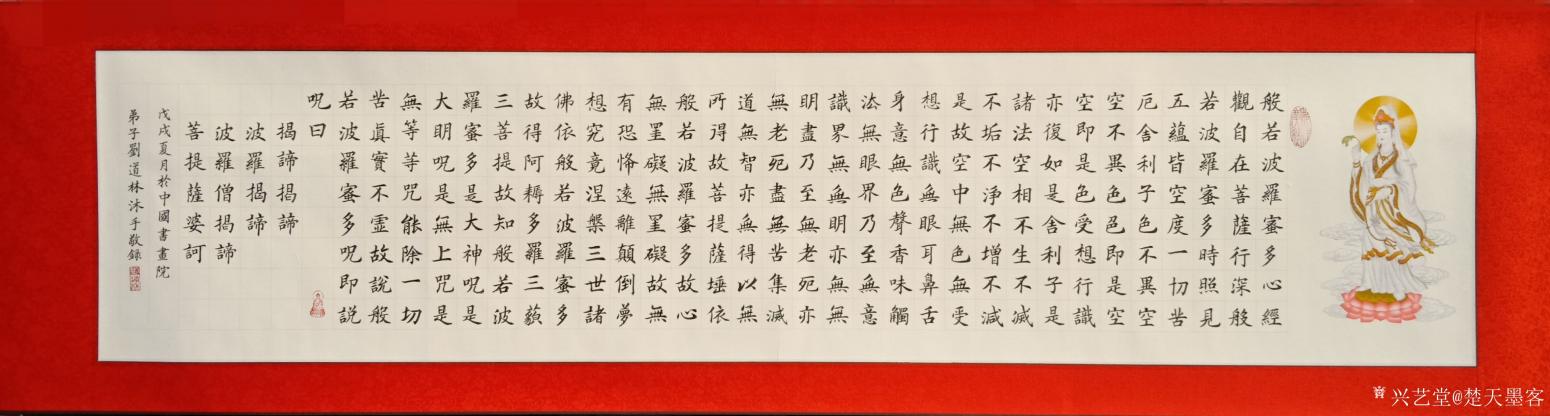 般若波羅蜜多心經
觀自在菩薩行深般
若波羅蜜多時照見
五蘊皆空度一切苦
厄舍利子色不異空
空不異色色即是空
空即是色受想行識
亦復如是舍利子是
諸法空相不生不滅
不垢不淨不增不減
是故空中無色無受
想行識無眼耳鼻舌
身意無色聲香味觸
法無眼界乃至無意
識界無無明亦無無
明盡乃至無老死亦
無老死盡無苦集滅
道無智亦無得以無
所得故菩提薩埵依
般若波羅蜜多故心
無罣礙無罣礙故無
有恐怖遠離顛倒夢
想究竟涅槃三世諸
佛依般若波羅蜜多
故得阿耨多羅三藐
三菩提故知般若波
羅蜜多是大神呪是
大明呪是無上咒是
無等等咒能除一切
苦真實不虛故說般
若波羅蜜多呪即説
呪曰
揭諦揭諦
波羅揭諦
波羅僧揭諦
菩提薩婆訶
戊戌夏月於中國書畫院
弟子劉道林沐手敬錄
兴艺堂@楚天墨客